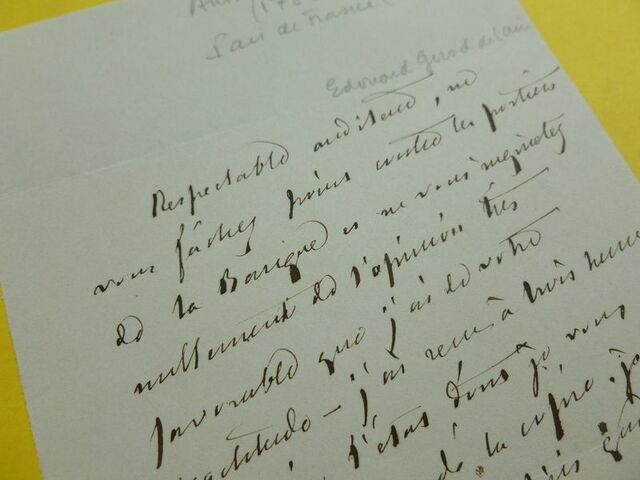 (178
Pair de France (
Edouard Girod de l'Ain
Respectable auditeur, ne
vous fâchez point contre les portiers
de la Banque et ne vous inquietez
nullement de l'opinion très
favorable que j'ai de votre
exactitude – j'ai reçu à trois heures
l'état dont je vous
de la copie. je